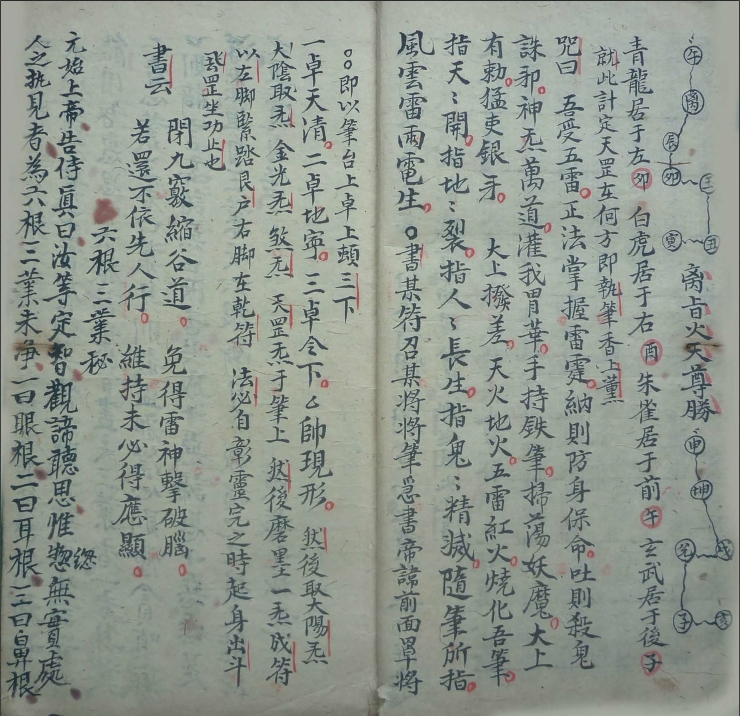 午
离
辰
卯
丑
寅
离旨火天尊勝
申
坤
戌
子
亥
青龍居于左卯 白虎居于右酉 朱雀居于前午 玄武居于後子
就此計定天罡在何方即執筆香上薰
咒曰 吾受五雷正法掌握雷霆納則防身保命吐則殺鬼
誅邪神炁萬道灌我胃華手持鉄筆掃蕩妖魔大上
有勅猛吏銀牙 大上撥差天火地火五雷紅火燒化吾筆
指天〻開指地〻裂指人〻長生指鬼〻精滅隨筆所指
風雲雷雨電生 書某符召某將將筆忌書帝諱前面罩將
即以筆台上卓上頓三下
一卓天清二卓地寧三卓令下厶帥現形 然後取大陽炁
大陰取炁金光炁煞炁 天罡炁于筆上 然後磨墨一炁成符
以左脚緊踏艮户右脚在乾符 法必自彰靈完之時起身出斗
飛罡坐功止也
書云 閉九竅縮谷道 免得雷神擊破腦
若還不依先人行 維持未必得應顯
六根三業秘
元始上帝告侍真曰汝等定智觀諦聽思惟惣總無實處
人之執見者為六根三業未净一曰眼根二曰耳根三曰鼻根